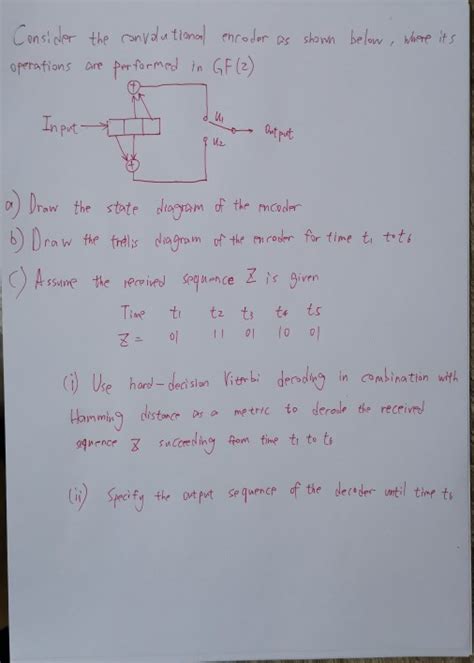 Consider the convolutional encoder as shown below, where its
operations are performed in GF(2)
+
Input
u1
Output
u2
+
a) Draw the state diagram of the encoder
b) Draw the trellis diagram of the encoder for time t1 to t6
c) Assume the received sequence Z is given
Time t1 t2 t3 t4 t5
Z = 01 11 01 10 01
(i) Use hard-decision Viterbi decoding in combination with
Hamming distance as a metric to decode the received
sequence Z succeeding from time t1 to t6
(ii) Specify the output sequence of the decoder until time t6